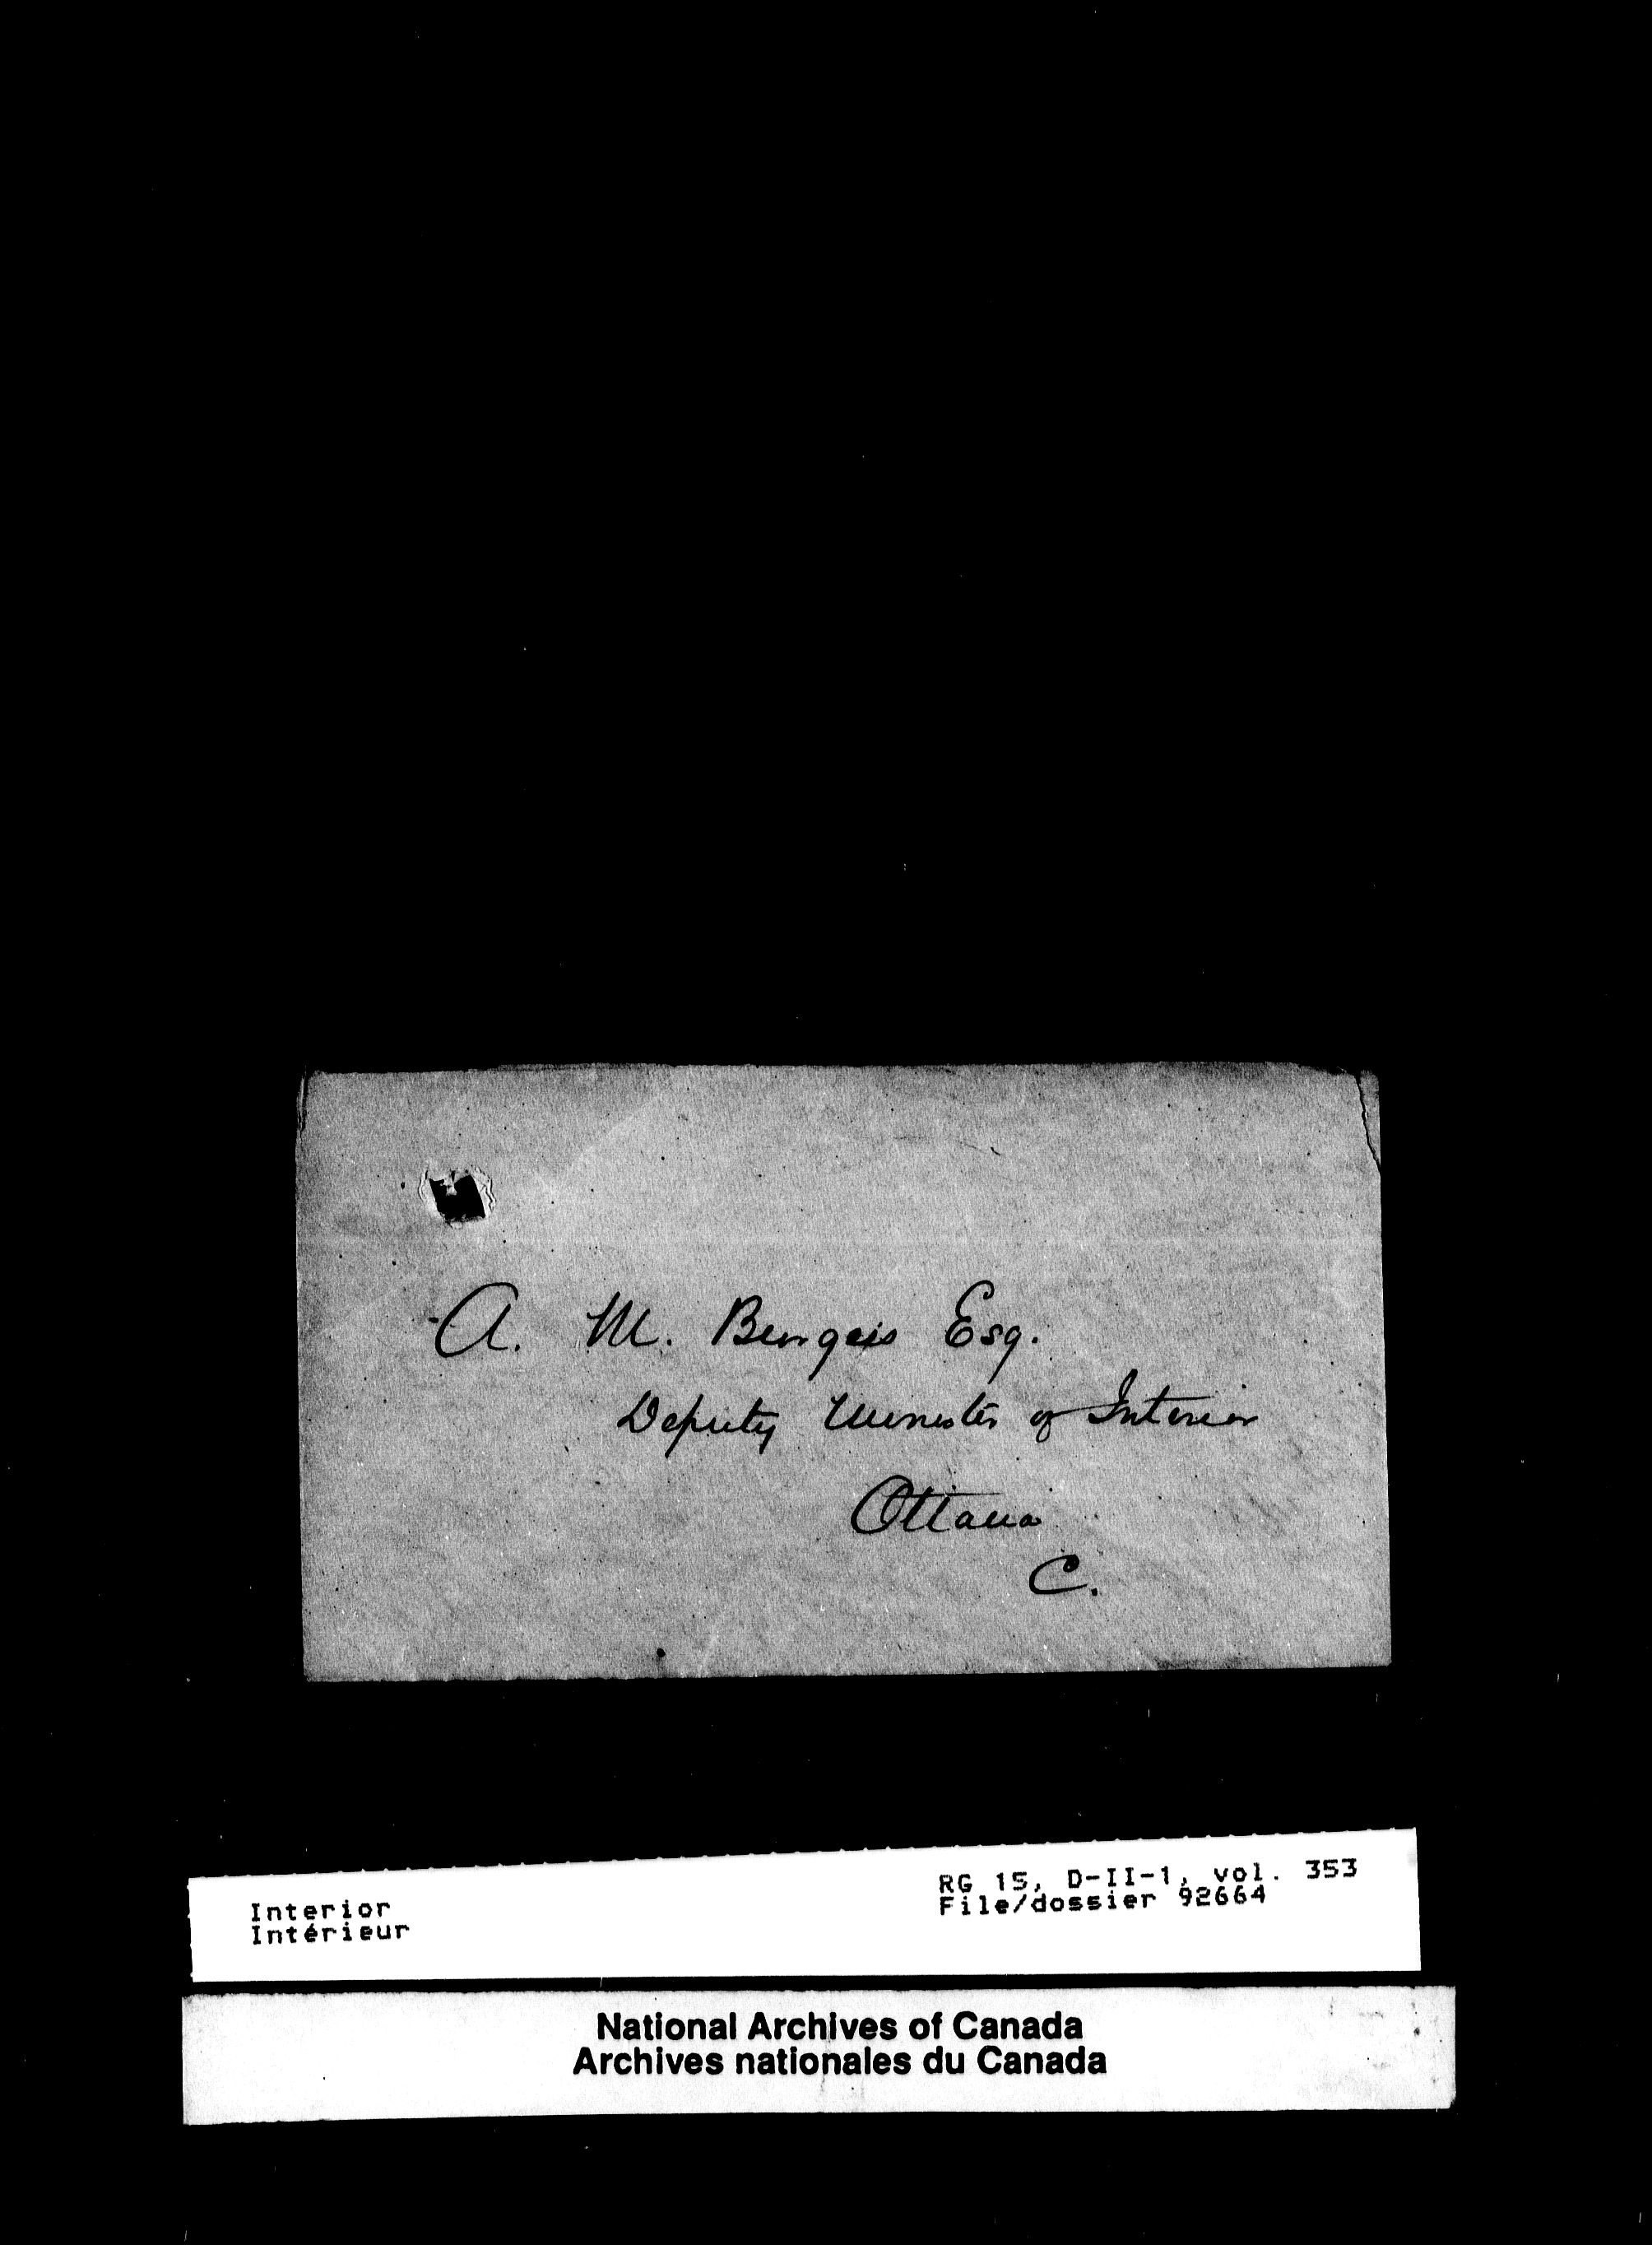 A. M. Burgess Esq.
Deputy Minister of Interior
Ottawa
C.
Interior
Intérieur
RG 15, D-II-1, vol. 353
File/dossier 92664
National Archives of Canada
Archives nationales du Canada